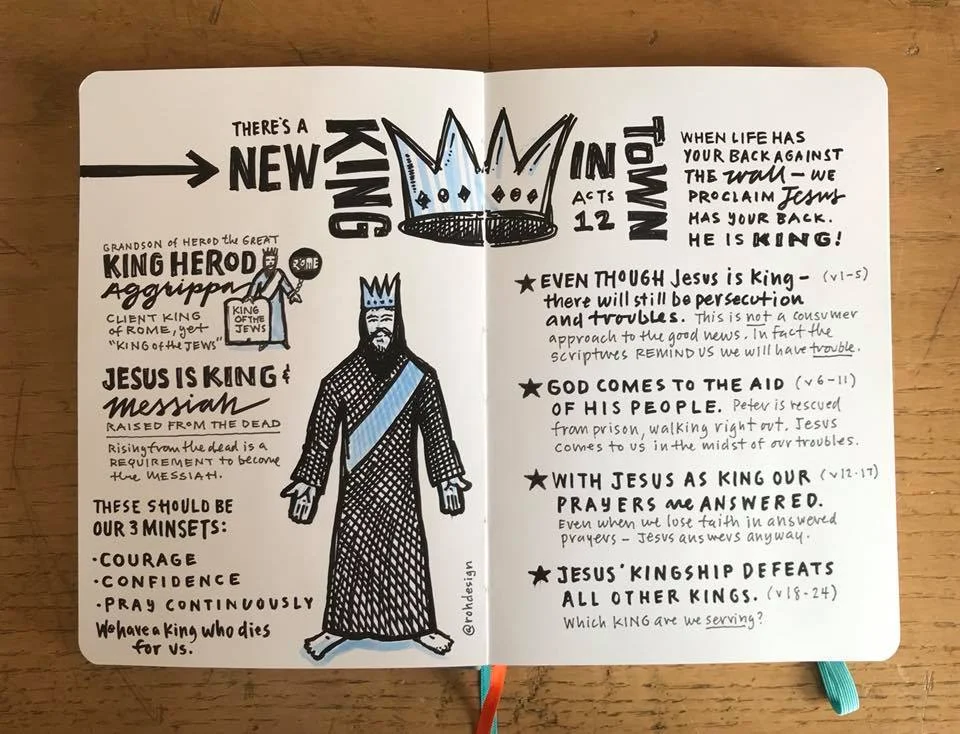 THERE'S A
NEW
KING
IN
ACTS
12
TOWN
WHEN LIFE HAS
YOUR BACK AGAINST
THE wall - WE
PROCLAIM Jesus
HAS YOUR BACK.
HE IS KING!
GRANDSON of HEROD the GREAT
KING HEROD
Aggrippa
CLIENT KING
of ROME, yet
"KING of the JEWS"
ROME
KING
OF THE
JEWS
JESUS IS KING &
Messiah
RAISED FROM THE DEAD
Rising from the dead is a
REQUIREMENT to become
the MESSIAH.
THESE SHOULD BE
OUR 3 MINSETS:
• COURAGE
• CONFIDENCE
• PRAY CONTINUOUSLY
We have a King who dies
for us.
@rohdesign
★ EVEN THOUGH Jesus is King - (v1-5)
there will still be persecution
and troubles. This is not a consumer
approach to the good news. In fact the
scriptures REMIND US we will have trouble.
★ GOD COMES TO THE AID (v6-11)
OF HIS PEOPLE. Peter is rescued
from prison, walking right out. Jesus
comes to us in the midst of our troubles.
★ WITH JESUS AS KING OUR (v12-17)
PRAYERS are ANSWERED.
Even when we lose faith in answered
prayers - Jesus answers anyway.
★ JESUS' KINGSHIP DEFEATS
ALL OTHER KINGS. (v18-24)
Which KING are we serving?